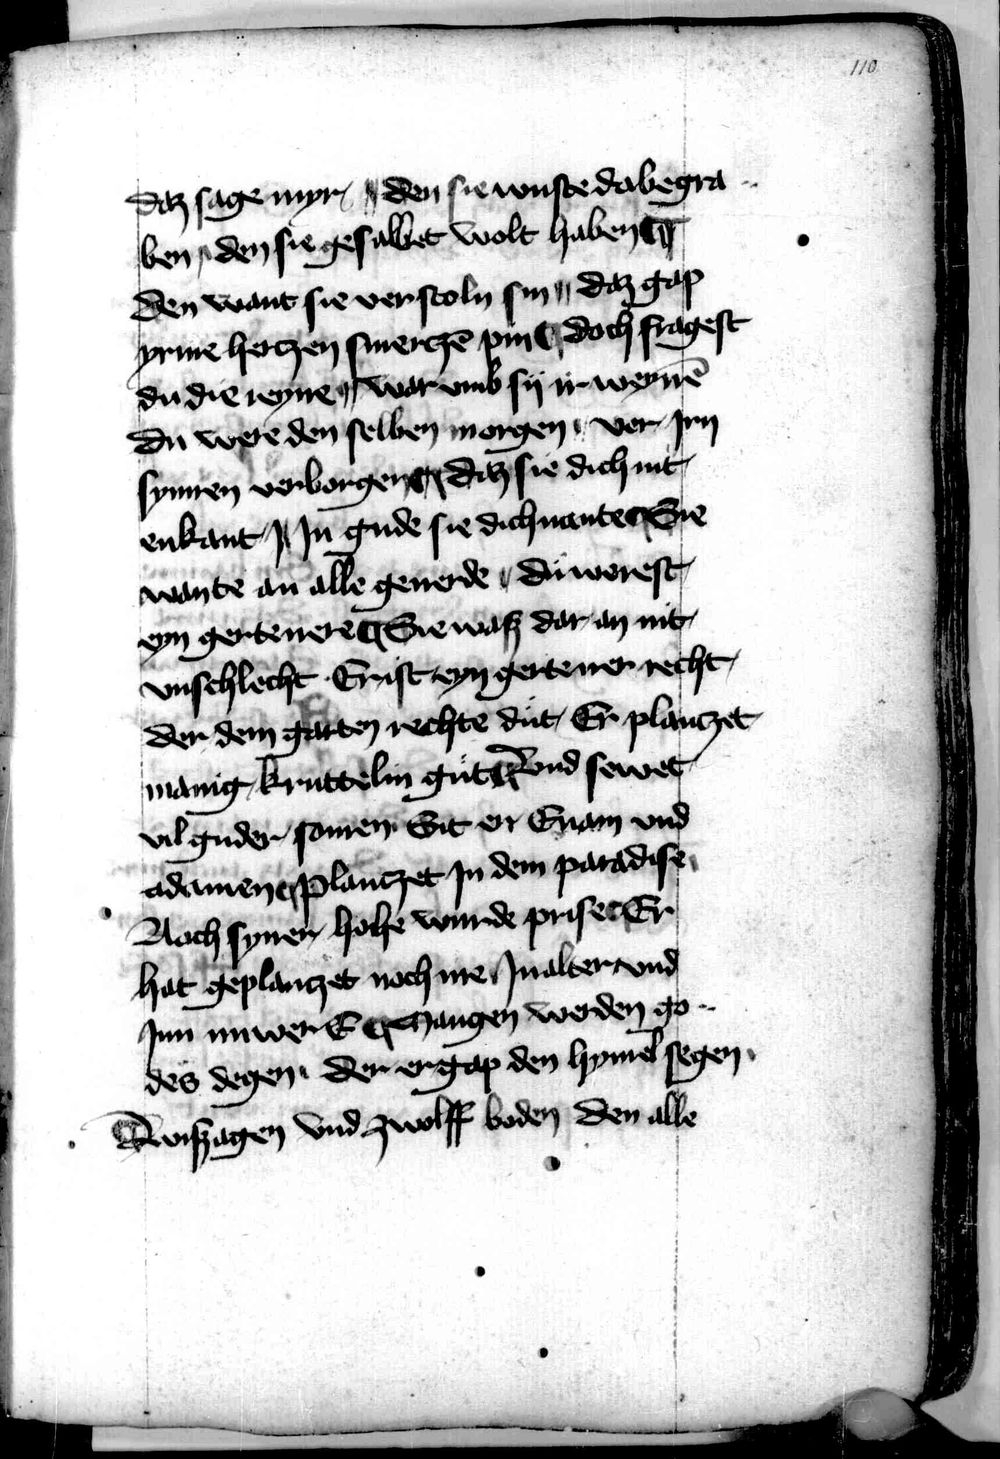 110
Daz sage myr / den sie wuste da begra
ben / den sie gesalbet wolt haben
Den want sie verstoln sin / daz gap
yrme hertzen smertzē pin doch fragest
du die reyne / war vmb sij ir weynē
Du were den selben morgen / vor Irn
synnen verborgen daz sie dich nit
enkant / In gude sie dich nante Sie
wante an alle geuerde / du werest
eyn gertenere Sie waß dar an nit
vnschlecht Er ist eyn gertener recht
Der dem garten rechte dut Er plantzet
manig kruttelin gut Vnd sewet
vil guder somen Sit er Euam vnd
adamen Plantzet In dem paradise
Noch syner hohe wurde prise Er
hat geplantzet noch me In alter vnd
Inn nuwer E Mangen werden go
des degen / Der er gap den hymel segen
Wißagen Vnd zwolff boden Den alle